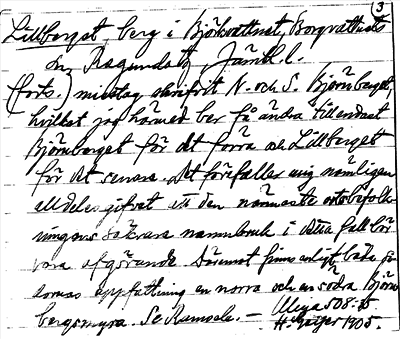 3
Lillberget, berg i Björkvattnet, Borgvattnets
sn, Ragunda tg, Jämtl. l.
(forts.) misstag skrifvit N. och S. Björnberget,
hvilket jag härmed ber få ändra till endast
Björnberget för det förra och Lillberget
för det senare. Det förefaller mig nämligen
alldeles gifvet att den närmaste ortsbefolk-
ningens säkrare namnbruk i detta fall bör
vara afgörande. Däremot finns enligt båda
sornas uppfattning en norra och en södra Björn-
bergsmyra. Se Ramsele. —
H. Geijer 1905.